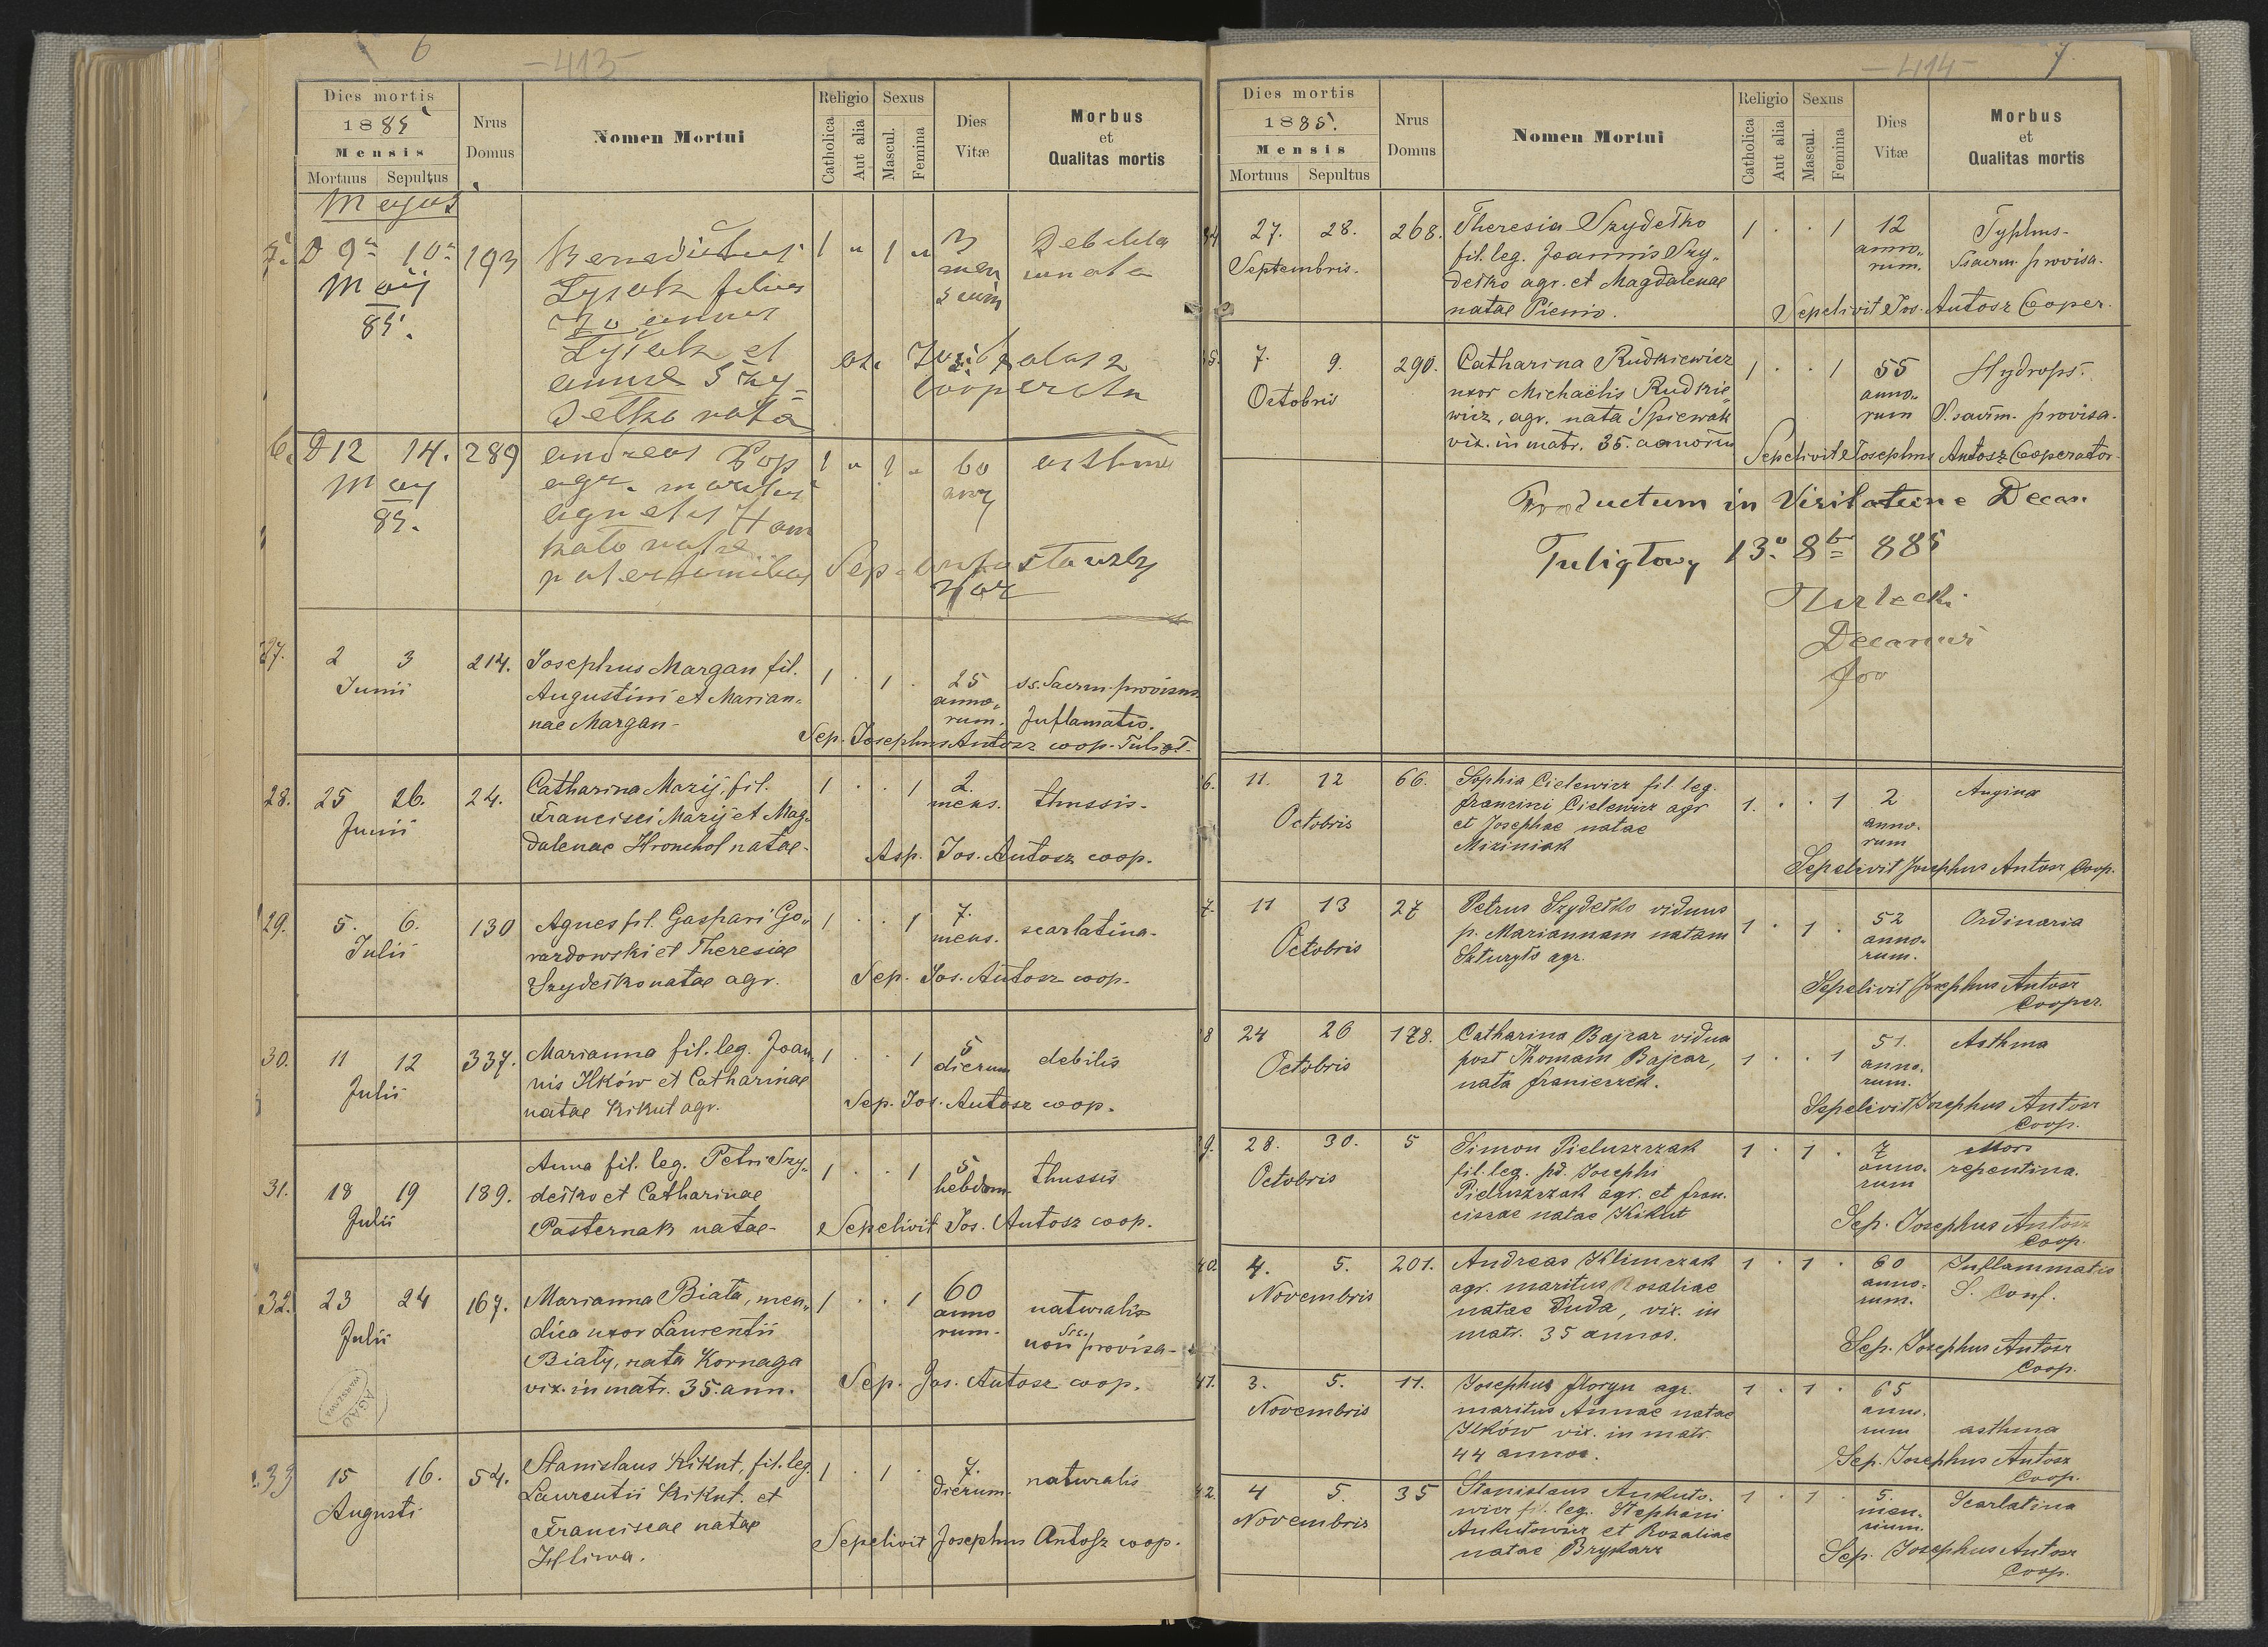 6
-413-
Dies mortis
1885
Mensis
Mortuus Sepultus
Nrus
Domus
Nomen Mortui
Religio
Catholica
Aut alia
Sexus
Mascul.
Femina
Dies
Vitæ
Morbus
et
Qualitas mortis
Majus
D 9a 10a 193 Benedictus 1 " 1 " 3
Maij Lysak filius men
85. Joannis sium
Lysak et
annae Szy-
dełko nata
cooperator
6. D12 14. 289 andreas Pop 1 " 1 " 60 asthma
May agr. maritus
85. agnetis
27. 2 3 214. Josephus Margan fil. 1 · 1 · 25 ss. Sacrm. provisus
Junii Augustini et Marian- anno-
nae Margan- rum. Inflamatio.
Sep. Josephus Antosz coop. Tuligł.
28. 25 26. 24. Catharina Mazij, fil. 1 · · 1 2. mens. thussis.
Junii Francisci Mazij et Mag-
dalenae Hronchol natae-
Asp. Jos. Antosz coop.
29. 5. 6. 130 Agnes fil. Gaspari Go- 1 · · 1 7. mens. scarlatina-
Julii razdowski et Theresiae
Szydełko natae agr.
Sep. Jos. Antosz coop.
30. 11 12 337. Marianna fil. leg. Joan- 1 · · 1 5 dierum debilis
Julii nis Ilków et Catharinae
natae Kikut agr.
Sep. Jos. Antosz coop.
31. 18 19 189. Anna fil. leg. Petri Szy- 1 · · 1 5 hebdom. thussis
Julii dełko et Catharinae
Pasternak natae-
Sepelivit Jos. Antosz coop.
32. 23 24 167. Marianna Biała, men- 1 · · 1 60 naturalis
Julii dica uxor Laurentii anno
Biały, nata Kornaga rum. non provisa-
vix. in matr. 35. ann.
Sep. Jos. Antosz coop.
AGAD
WARSZAWA
33 15 16. 54. Stanislaus Kikut, fil. leg. 1 · 1 · 7. dierum. naturalis
Augusti Laurentii Kikut et
Franciscae natae
Hliwa.
Sepelivit Josephus Antosz coop.
-414- 7.
Dies mortis
1885.
Mensis
Mortuus Sepultus
Nrus
Domus
Nomen Mortui
Religio
Catholica
Aut alia
Sexus
Mascul.
Femina
Dies
Vitæ
Morbus
et
Qualitas mortis
34 27. 28. 268. Theresia Szydełko 1 · · 1 12 Typhus-
Septembris. fil. leg. Joannis Szy- anno-
dełko agr. et Magdalenae rum. Ssacrm. provisa.
natae Pienio.
Sepelivit Jos. Antosz Cooper.
35. 7. 9. 290. Catharina Rudkiewicz 1 · · 1 55 Hydrops.
Octobris uxor Michaëlis Rudkie- anno-
wicz, agr. nata Spiewak rum S. sacrm. provisa.
vix. in matr. 35. annorum
Sepelivit Josephus Antosz Cooperator.
Productum in Visitatione Decan.
Tuligłowy 13o 8br 885
Decanus
6. 11. 12 66. Sophia Cielewicz fil. leg. 1. · · 1 2 Angina
Octobris Cielewicz agr anno.
et Josephae natae rum
Miziniak
Sepelivit Josephus Antosz Coop.
7. 11 13 27 Petrus Szydełko viduus 1 · 1 · 52 Ordinaria
Octobris p. Mariannam natam anno-
agr. rum.
Sepelivit Josephus Antosz
Cooper.
8 24 26 178. Catharina Bajcar vidua 1 · · 1 51. Asthma
Octobris post Thomam Bajcar, anno.
nata Franiczek. rum.
Sepelivit Josephus Antosz
Coop.
9. 28. 30. 5 Simon Pieluszczak 1 · 1 · 7 Mors
Octobris fil. leg. pd. Josephi anno- repentina.
Pieluszczak agr. et Fran- rum
ciscae natae Kikut
Sep. Josephus Antosz
Coop.
40. 4. 5. 201. Andreas Klimczak 1 · 1 · 60 Inflammatio
Novembris agr. maritus Rosaliae anno- S. Conf.
natae Duda, vix. in rum.
matr. 35 annos.
Sep. Josephus Antosz
Coop.
41. 3. 5. 11. Josephus Floryn agr. 1 · 1 · 65
Novembris maritus Annae natae anno.
Ilków vix. in matr. rum asthma
44 annos.
Sep. Josephus Antosz
Coop.
42. 4 5. 35 Stanislaus Ankuto- 1 · 1 · 5. Scarlatina
Novembris wicz fil. leg. Stephani men-
Ankutowicz et Rosaliae sium.
natae Brykarz
Sep. Josephus Antosz
Coop.